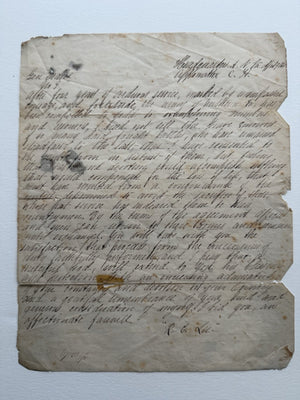 Appomattox C. H.
No 9
After four years of arduous service, marked by unsurpassed
courage and fortitude, the army of
been compelled to yield to overwhelming numbers
and I need not tell the brave survivors
of so many hard fought battles, who have remained
steadfast to the last, that I have consented to
the result from no distrust of them; but feeling
that valor and devotion could accomplish nothing
that would compensate for the loss of life that
must have resulted from a continuance of the
contest I determined to avoid the sacrifice of those
whose past have endeared them to their
countrymen. By the terms of the agreement officers
and men can return to their homes and remain
until exchanged. You will take with you the
satisfaction that proceeds from the consciousness
of duty faithfully performed and I pray that a
merciful God will extend to you his blessing
and protection. With an unceasing admiration
of your constancy and devotion to your country
and a grateful remembrance of your kind and
generous consideration of myself, I bid you an
affectionate farewell
R. E. Lee